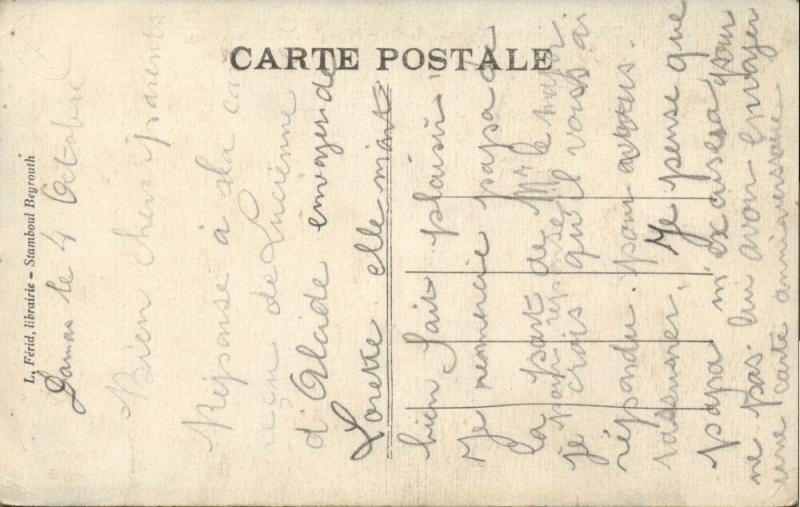 CARTE POSTALE
L. Férid, librairie - Stamboul Beyrouth
Damas le 4 Octobre
Bien chers parents
Réponse à sla
reçu de Lucienne
d'Alaide envoyer de
Lorette elle miant
bien fait plaisir
Je remercie papa
la part de Mr le major
je crois qu'il vous ai
répondu. pour avous
rassurer. Je pense que
papa m'excusera pour
ne pas lui avoir envoyer
une carte anniverssaire